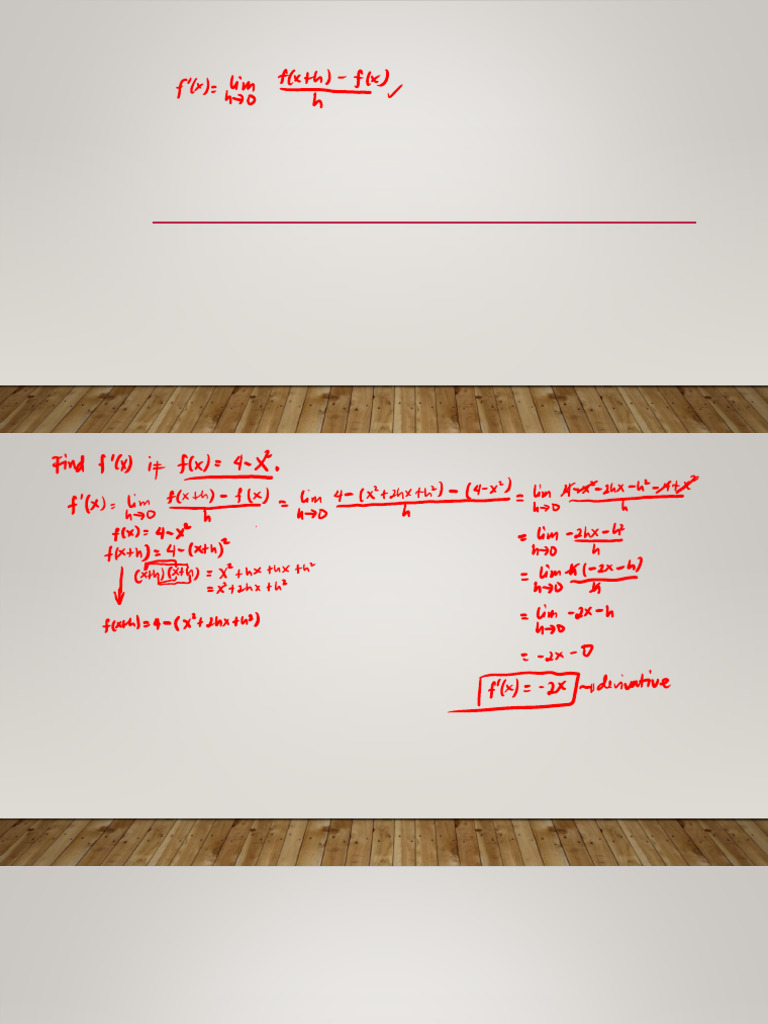 f'(x) = lim h→0 f(x+h) - f(x) / h ✓
Find f'(x) if f(x) = 4-x².
f'(x) = lim h→0 f(x+h) - f(x) / h = lim h→0 4-(x²+2hx+h²) - (4-x²) / h = lim h→0 4-x²-2hx-h²-4+x² / h
f(x) = 4-x²
f(x+h) = 4-(x+h)²
(x+h)(x+h) = x²+hx+hx+h²
= x²+2hx+h²
f(x+h) = 4-(x²+2hx+h²)
= lim h→0 -2hx-h² / h
= lim h→0 h(-2x-h) / h
= lim h→0 -2x-h
= -2x-0
f'(x) = -2x → derivative